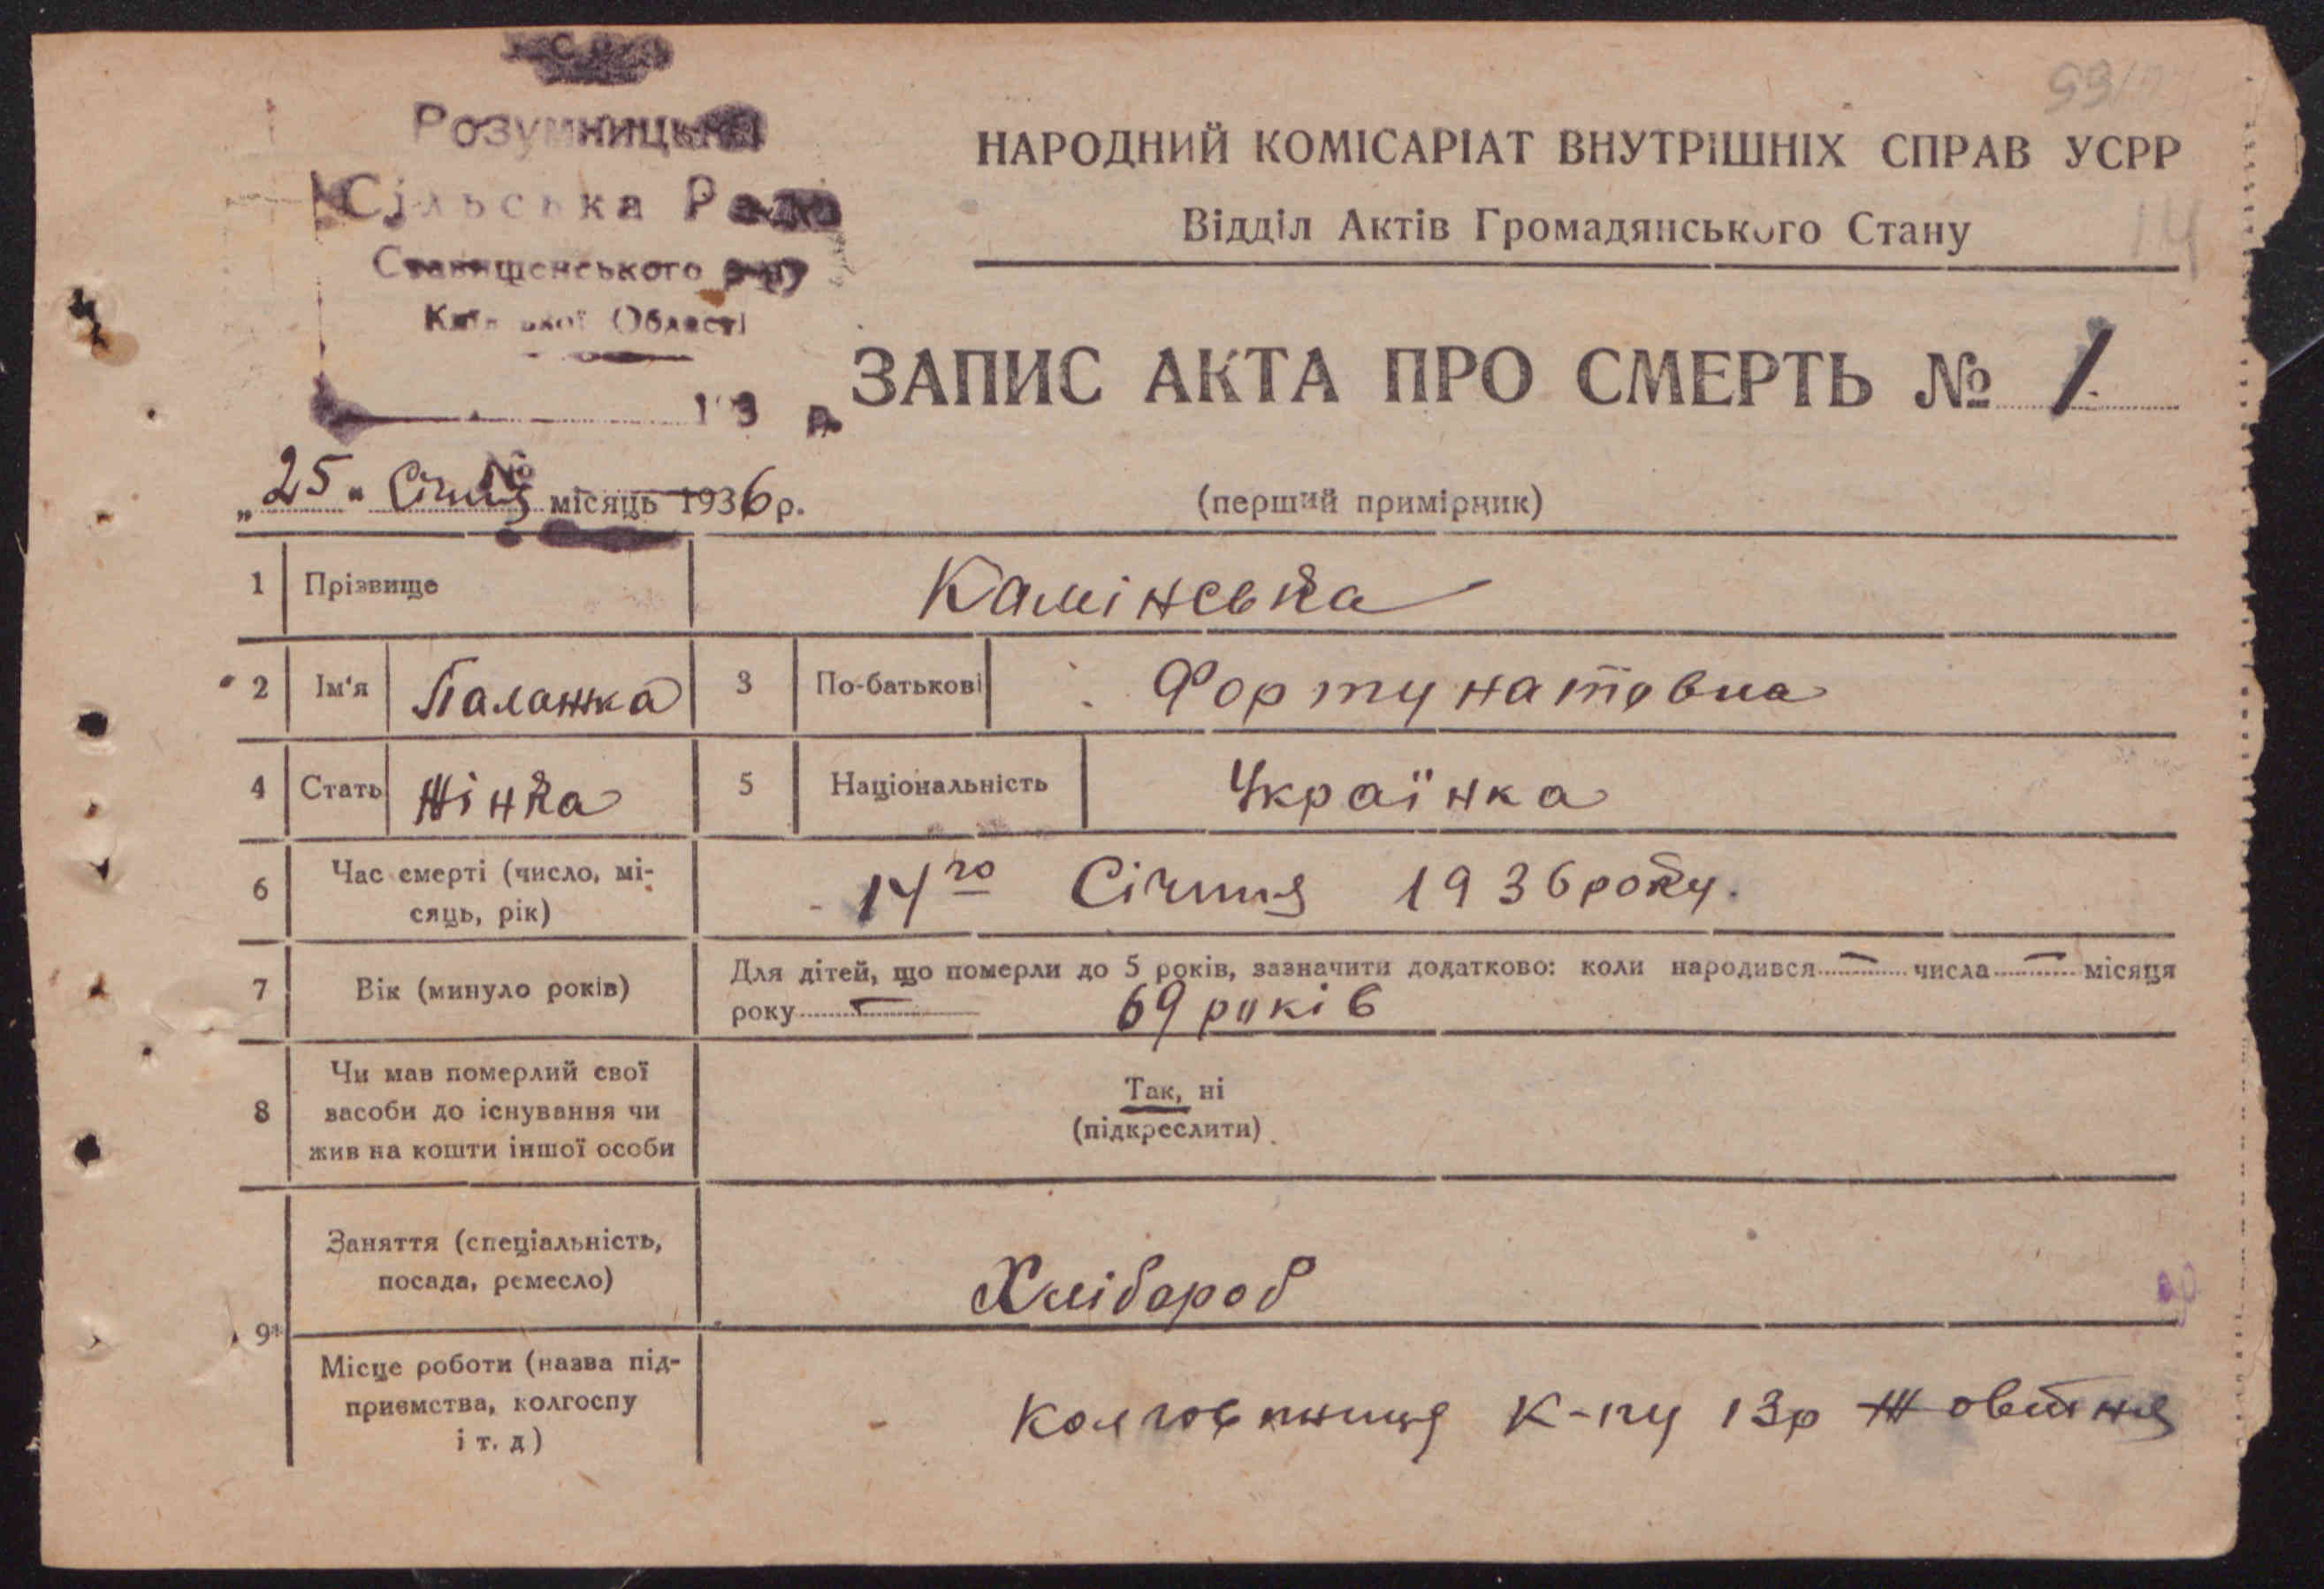 Розумницька
Сільська Рада
Ставищенського р-ну
Київської Області
193 р.
99
14
НАРОДНИЙ КОМІСАРІАТ ВНУТРІШНІХ СПРАВ УСРР
Відділ Актів Громадянського Стану
ЗАПИС АКТА ПРО СМЕРТЬ № 1.
„25" Січня місяць 1936 р.
№
(перший примірник)
1 Прізвище Камінська
2 Ім'я Палажка 3 По-батькові Фортунатовна
4 Стать Жінка 5 Національність Українка
6 Час смерті (число, мі-
сяць, рік) 14го Січня 1936 року.
7 Вік (минуло років) Для дітей, що померли до 5 років, зазначити додатково: коли народився — числа — місяця
року — 69 років
8 Чи мав померлий свої
засоби до існування чи
жив на кошти іншої особи
Так, ні
(підкреслити)
9* Заняття (спеціальність,
посада, ремесло) Хлібороб
Місце роботи (назва під-
приємства, колгоспу
і т. д) Колгоспниця К-пу 13р Жовтня